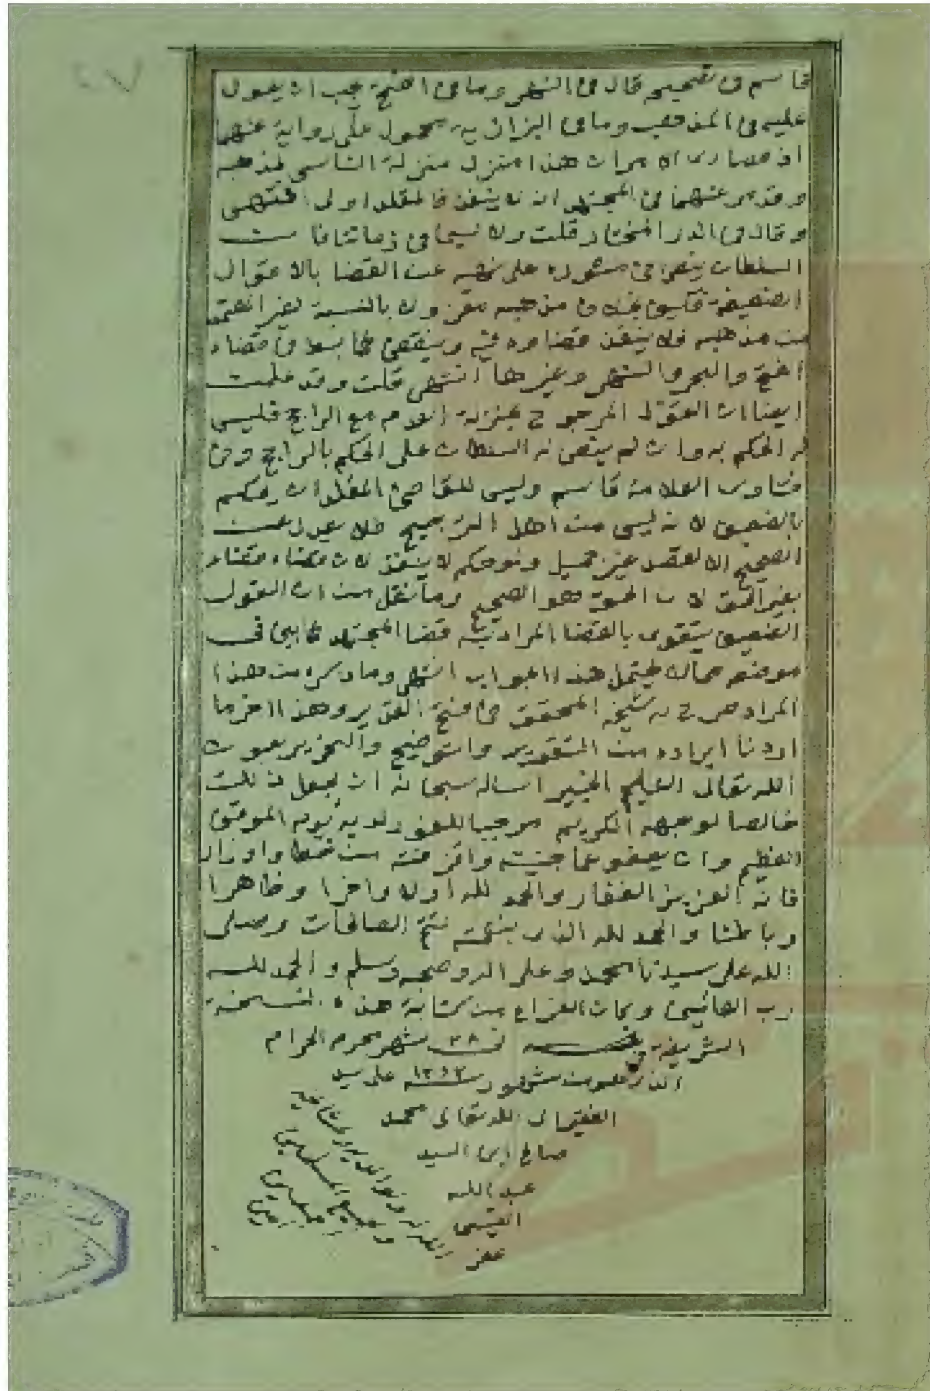 قاسم في تصحيحه قال في النهر وما في الفتح يجب ان يعول
عليه في المذهب وما في البزازية محمول على رواية عنهما
اذ قصارى الامر ان هذا منزل منزلة الناسي لمذهبه
وقد مر عنهما في المجتهد انه لا ينفذ فالمقلد اولى انتهى
وقال في الدر المختار قلت ولا سيما في زماننا فان
السلطان ينص في منشوره على نهيه عن القضا بالاقوال
الضعيفة فكيف بخلاف مذهبه فيكون معزولا بالنسبة لغير المعتمد
من مذهبه فلا ينفذ قضاؤه فيه وينقض كما بسط في قضاء
الفتح والبحر والنهر وغيرها انتهى قلت وقد علمت
ايضا ان القول المرجوح بمنزلة العدم مع الراجح فليس
له الحكم به وان لم ينص له السلطان على الحكم بالراجح وفي
فتاوى العلامة قاسم وليس للقاضي المقلد ان يحكم
بالضعيف لانه ليس من اهل الترجيح فلا يعدل عن
الصحيح الا لقصد غير جميل ولو حكم لا ينفذ لان قضاءه قضاء
بغير الحق لان الحق هو الصحيح وما نقل من ان القول
الضعيف يتقوى بالقضا المراد به قضا المجتهد كما بين في
موضعه مما لا يحتمل هذا الجواب انتهى وما ذكره من هذا
المراد صرح به شيخه المحقق في فتح القدير وهذا اخر ما
اردنا ايراده من التقرير والتوضيح والتحرير بعون
الله تعالى العليم الخبير اساله سبحانه ان يجعل ذلك
خالصا لوجهه الكريم موجبا للفوز لديه يوم الموقف
العظيم وان يعفو عما جنيته واقترفته من خطا واوزار
فانه العزيز الغفار والحمد لله اولا واخرا وظاهرا
وباطنا والحمد لله الذي بنعمته تتم الصالحات وصلى
الله على سيدنا محمد وعلى اله وصحبه وسلم والحمد لله
رب العالمين وكان الفراغ من كتابة هذه النسخة
الشريفة في ٢٨ شهر محرم الحرام
الذي من شهور سنة على يد
الفقير الى الله تعالى محمد
صالح ابن السيد
عبد الله
غفر الله له ولوالديه ولمشايخه
وجميع المسلمين
اجمعين
امين